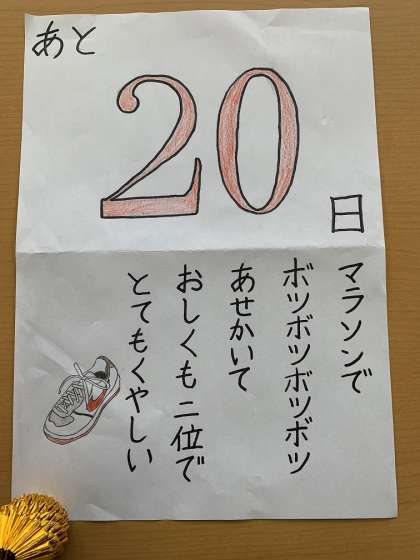 あと
20
日
マラソンで
ボツボツボツボツ
あせかいて
おしくも二位で
とてもくやしい